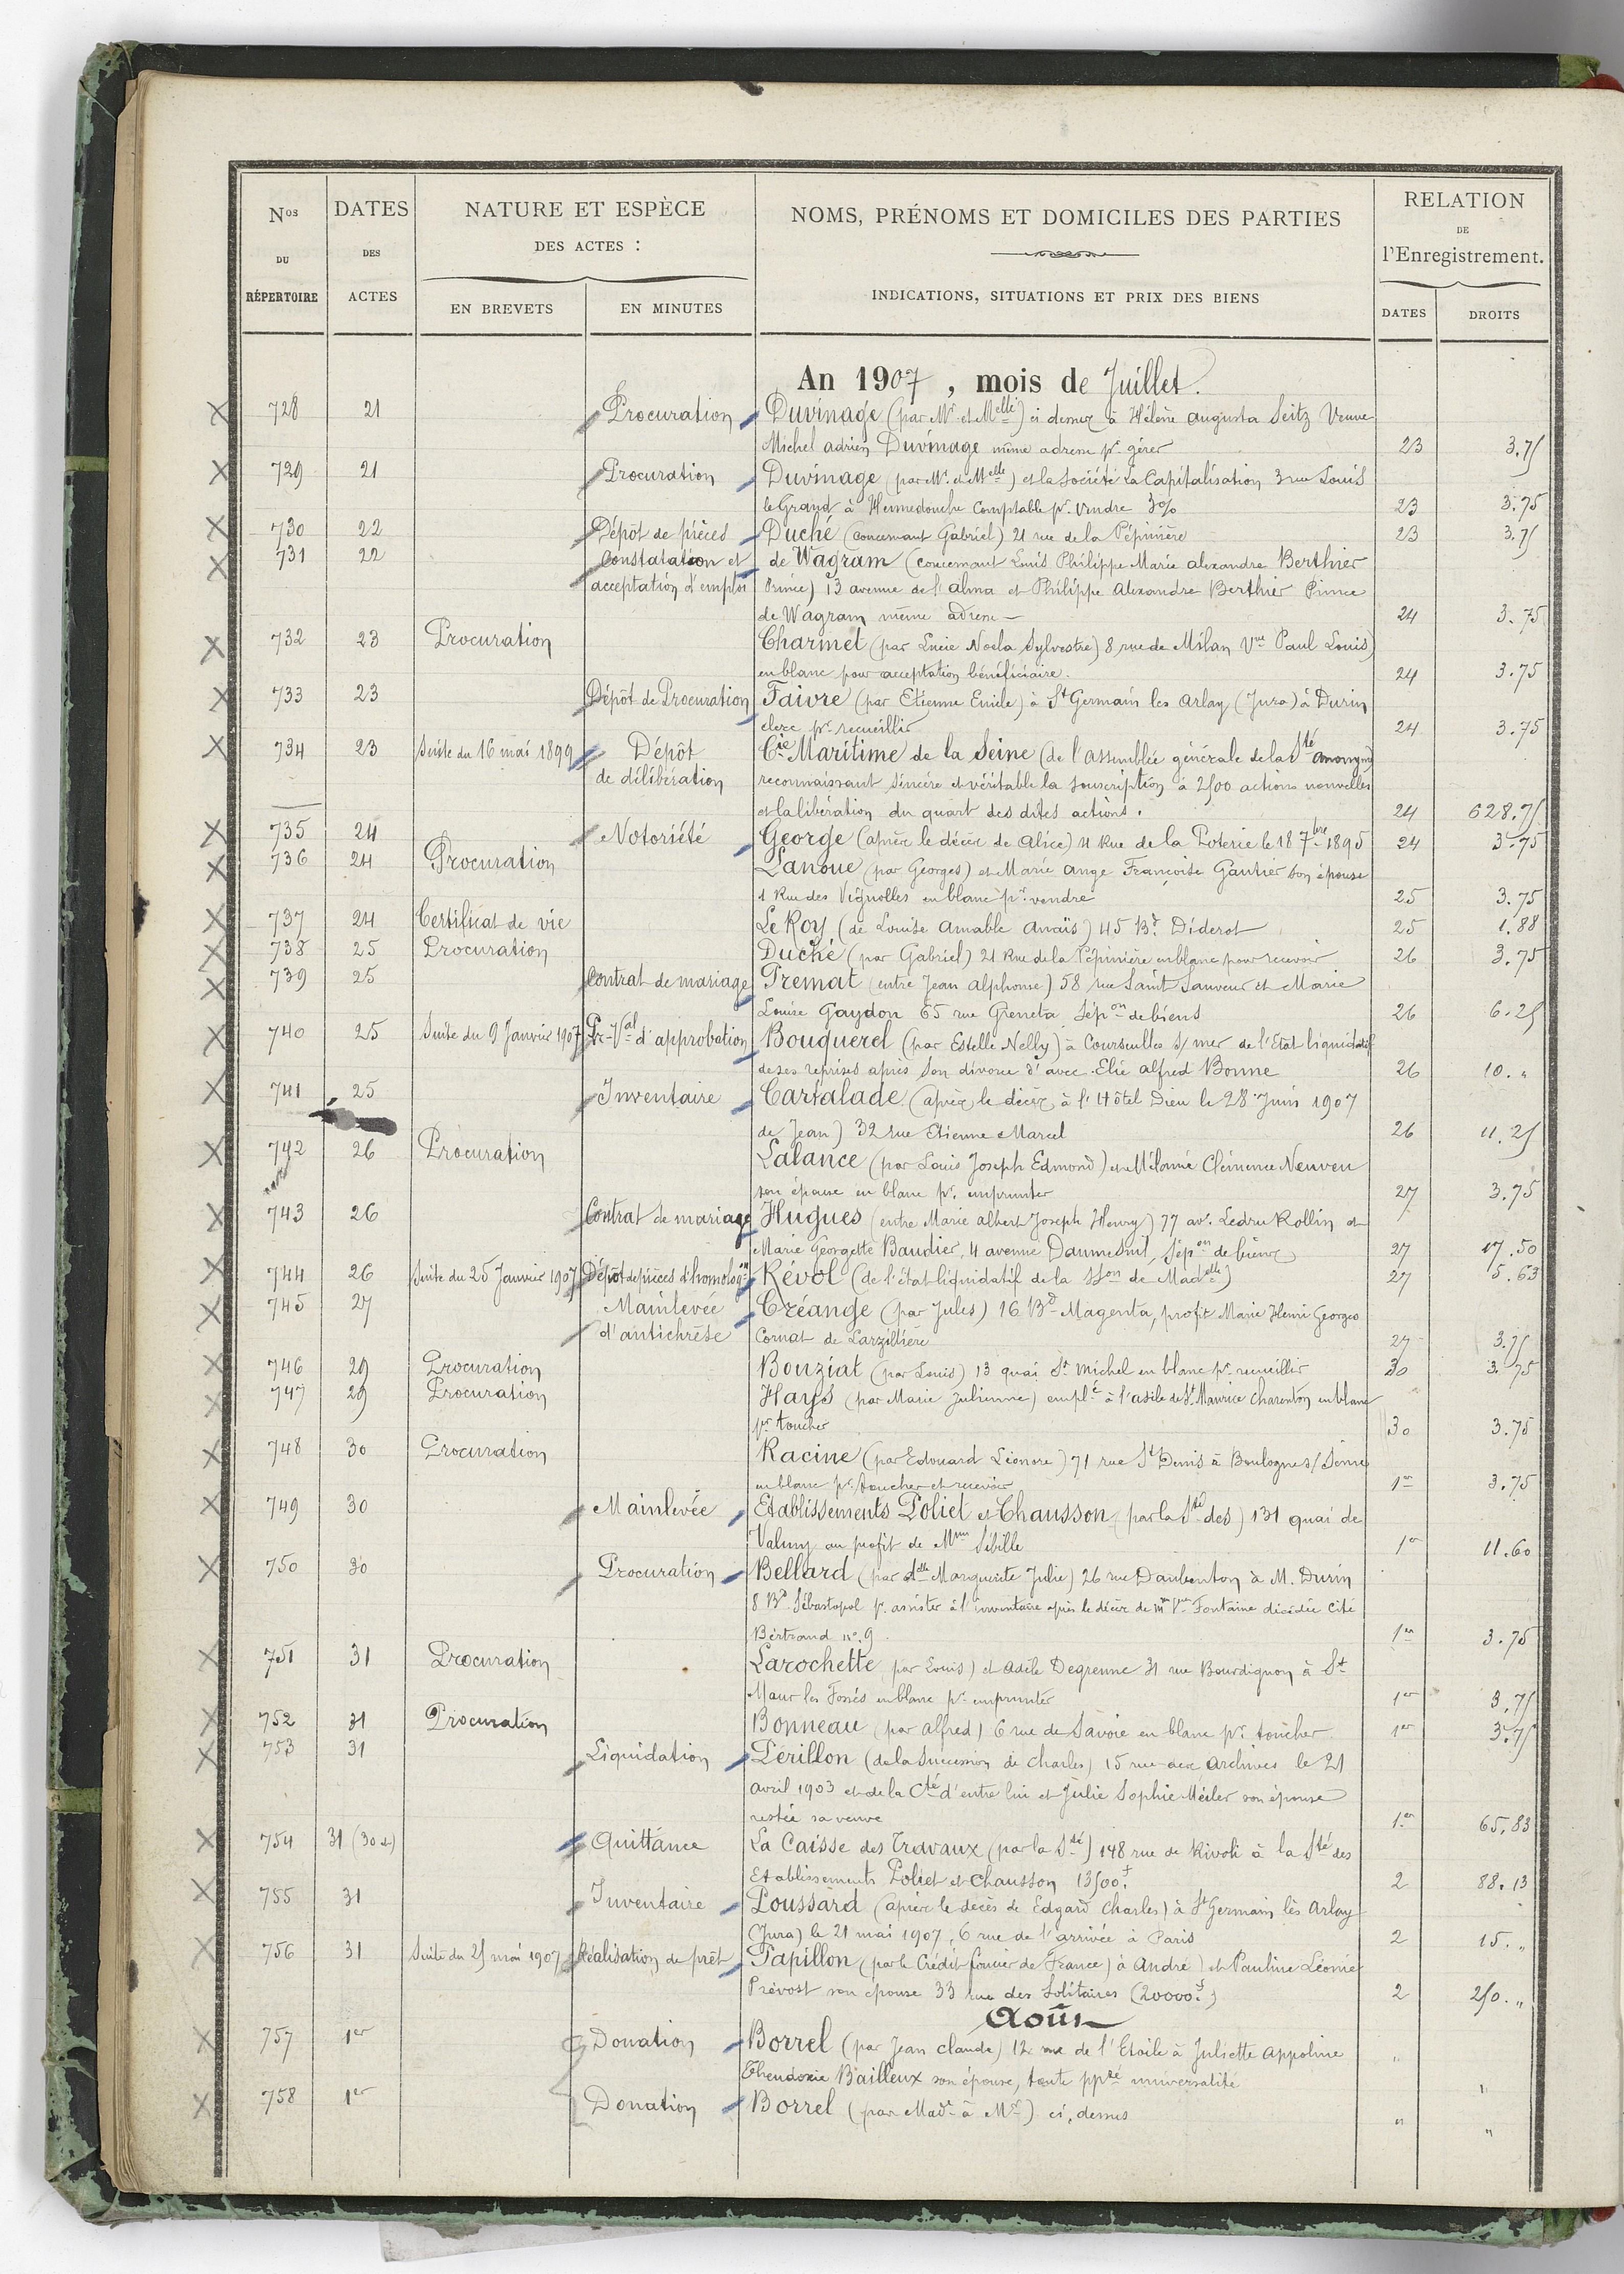 Nos DU RÉPERTOIRE
DATES DES ACTES
NATURE ET ESPÈCE DES ACTES :
EN BREVETS
EN MINUTES
NOMS, PRÉNOMS ET DOMICILES DES PARTIES
INDICATIONS, SITUATIONS ET PRIX DES BIENS
RELATION DE l'Enregistrement.
DATES
DROITS
An 1907, mois de Juillet.
728 21 Procuration Duvinage (par Mr et Melle) ci dessus à Hélène Augusta Seitz Veuve
Michel adrien Duvinage même adresse pr gérer 23 3.75
729 21 Procuration Duvinage (par Mr et Melle) et la Société La Capitalisation 3 rue Louis
le Grand à Hermedouche Comptable pr vendre 3% 23 3.75
730 22 Dépôt de pièces Duché (concernant Gabriel) 21 rue de la Pépinière 23 3.75
731 22 Constatation et de Wagram (concernant Louis Philippe Marie alexandre Berthier
acceptation d'emploi Prince) 13 avenue de l'alma et Philippe Alexandre Berthier Prince
de Wagram même adresse 24 3.75
732 23 Procuration Charmet (par Lucie Noela Sylvestre) 8 rue de Milan Vve Paul Louis)
en blanc pour acceptation bénéficiaire. 24 3.75
733 23 Dépôt de Procuration Faivre (par Etienne Emile) à St Germain les Arlay (Jura) à Durin
clerc pr recueillir 24 3.75
734 23 Suite du 16 mai 1899 Dépôt Cie Maritime de la Seine (de l'assemblée générale de la Sté anonyme)
de délibération reconnaissant sincère et véritable la souscription à 2500 actions nouvelles
et la libération du quart des dites actions. 24 628.75
735 24 Notoriété George (après le décès de Alice) 4 Rue de la Poterie le 18 7bre 1895 24 3.75
736 24 Procuration Lanoue (par Georges) et Marie Ange Françoise Gautier son épouse
1 Rue des Vignolles en blanc pr vendre 25 3.75
737 24 Certificat de vie Le Roy (de Louise Amable Anaïs) 45 Bd Diderot 25 1.88
738 25 Procuration Duché (par Gabriel) 21 Rue de la Pépinière en blanc pour recevoir 26 3.75
739 25 Contrat de mariage Premat (entre Jean Alphonse) 58 rue Saint Sauveur et Marie
Louise Gaydon 65 rue Greneta Sépon de biens 26 6.25
740 25 Suite du 9 Janvier 1907 Pr-Val d'approbation Bouquerel (par Estelle Nelly) à Courseulles s/mer de l'Etat liquidatif
de ses reprises après son divorce d'avec Elie alfred Bonne 26 10.„
741 25 Inventaire Cartalade (après le décès à l'Hôtel Dieu le 28 Juin 1907
de Jean) 32 rue Etienne Marcel 26 11.25
742 26 Procuration Lalance (par Louis Joseph Edmond) et Mélanie Clémence Neuveu
son épouse en blanc pr. emprunter 27 3.75
743 26 Contrat de mariage Hugues (entre Marie albert Joseph Henry) 77 av. Ledru Rollin et
Marie Georgette Baudier, 4 avenue Daumesnil, Sépon de biens 27 17.50
744 26 Suite du 25 Janvier 1907 Dépôt de pièces d'homologon Révol (de l'état liquidatif de la SSon de Madelle) 27 5.63
745 27 Mainlevée Créange (par Jules) 16 Bd Magenta, profit Marie Henri Georges
d'antichrèse Cornat de Larzillière 27 3.75
746 29 Procuration Bouziat (par Louis) 13 quai St Michel en blanc pr recueillir 30 3.75
747 29 Procuration Hays (par Marie Julienne) emplé à l'asile de St Maurice Charenton en blanc
pr toucher 30 3.75
748 30 Procuration Racine (par Edouard Léonore) 71 rue St Denis à Boulogne s/Seine
en blanc pr. toucher et recevoir 1er 3.75
749 30 Mainlevée Etablissements Poliet et Chausson (par la Sté des) 131 quai de
Valmy au profit de Mme Sébille 1er 11.60
750 30 Procuration Bellard (par Melle Marguerite Julie) 26 rue Daubenton à M. Durin
8 Bd Sébastopol pr. assister à l'inventaire après le décès de Mme Vve Fontaine décédée Cité
Bertrand no. 9 1er 3.75
751 31 Procuration Larochette (par Louis) et Adèle Degrenne 31 rue Bourdignon à St
Maur les Fossés en blanc pr emprunter 1er 3.75
752 31 Procuration Bonneau (par Alfred) 6 rue de Savoie en blanc pr. toucher 1er 3.75
753 31 Liquidation Périllon (de la Succession de Charles) 15 rue des Archives le 21
avril 1903 et de la Cté d'entre lui et Julie Sophie Méiler son épouse
restée sa veuve 1er 65.83
754 31 (30 et) Quittance La Caisse des Travaux (par la Sté) 148 rue de Rivoli à la Sté des
Etablissements Poliet et Chausson 13500f. 2 88.13
755 31 Inventaire Poussard (après le décès de Edgard Charles) à St Germain lès Arlay
(Jura) le 21 mai 1907, 6 rue de l'arrivée à Paris 2 15.„
756 31 Suite du 25 mai 1907 Réalisation de prêt Papillon (par le Crédit foncier de France) à André) et Pauline Léonie
Prévost son épouse 33 rue des Solitaires (20000f.) 2 250.„
Août
757 1er Donation Borrel (par Jean Claude) 12 rue de l'Etoile à Juliette Appoline „
Theudoxie Bailleux son épouse, toute ppté universalité „
758 1er Donation Borrel (par Made à Mr) ci, dessus „ „